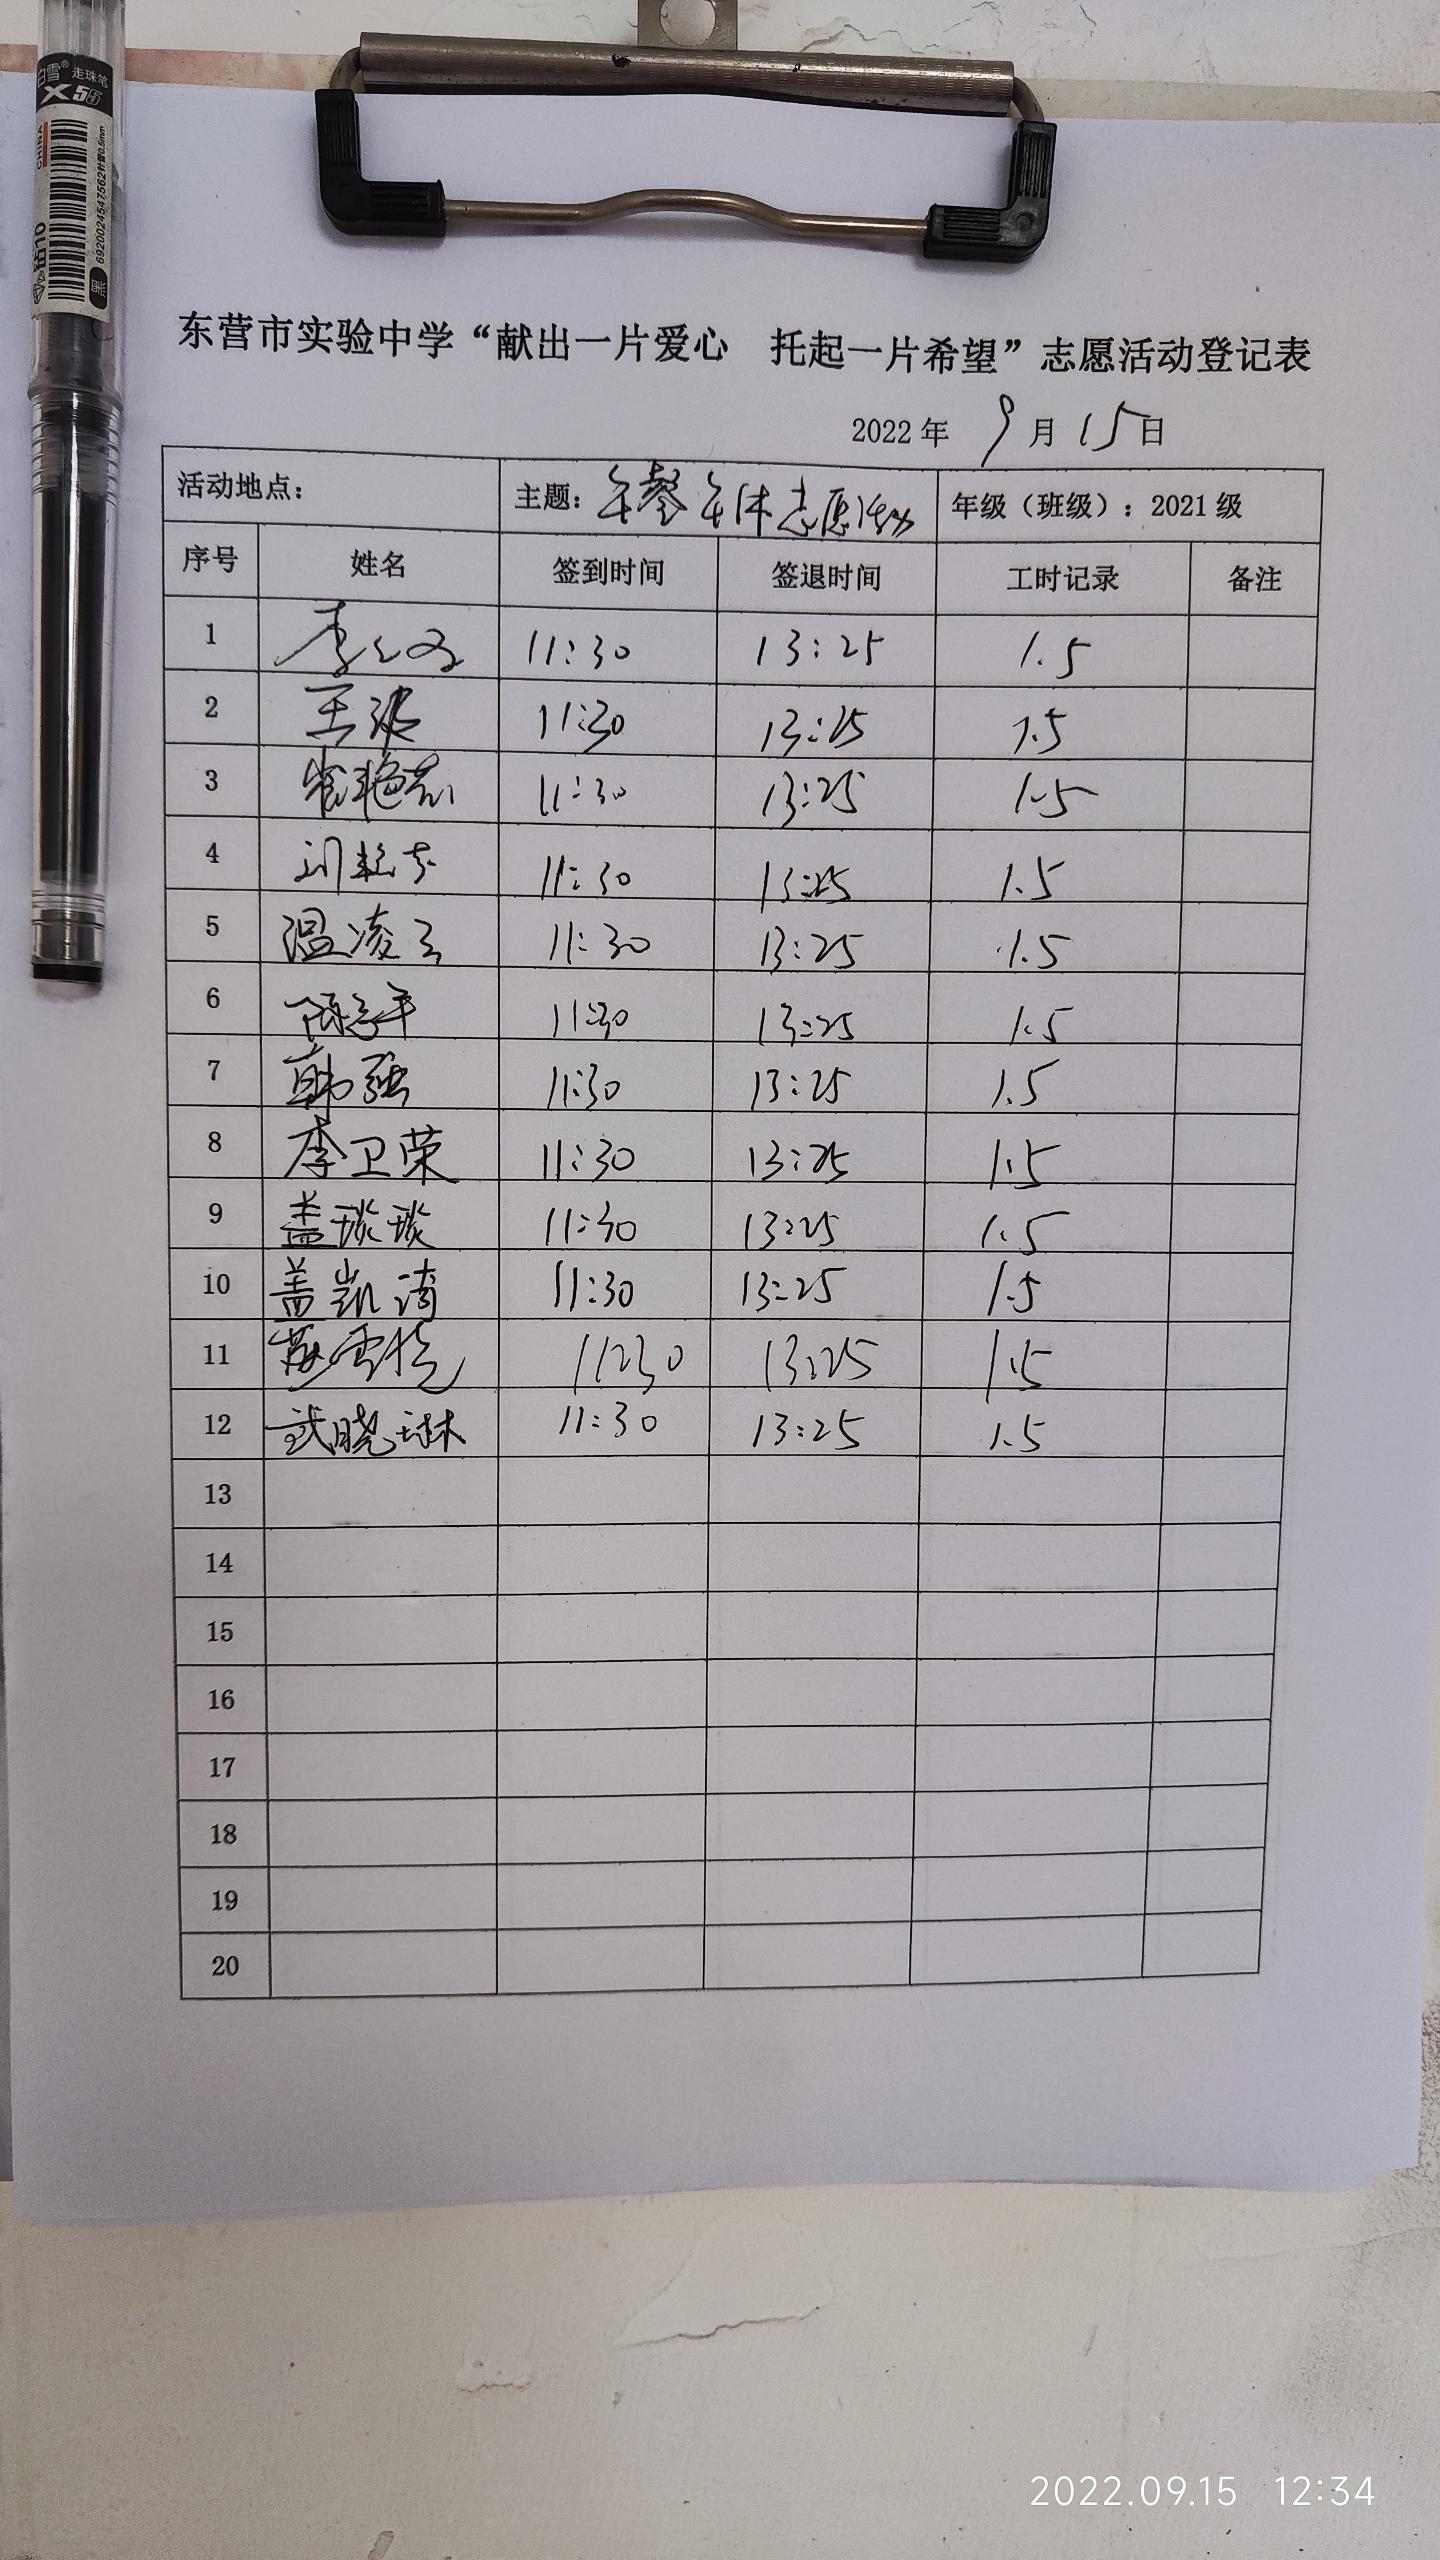 白雪® 走珠笔
X55
CHINA
6920024547562 针管0.5mm
黑
东营市实验中学“献出一片爱心 托起一片希望”志愿活动登记表
2022 年 9 月 15 日
活动地点: 主题: 午餐午休志愿活动 年级（班级）: 2021 级
序号 姓名 签到时间 签退时间 工时记录 备注
1 李 11:30 13:25 1.5
2 王波 11:30 13:25 1.5
3 崔艳 11:30 13:25 1.5
4 刘 11:30 13:25 1.5
5 温凌云 11:30 13:25 1.5
6 陈 11:30 13:25 1.5
7 韩强 11:30 13:25 1.5
8 李卫荣 11:30 13:25 1.5
9 盖琰琰 11:30 13:25 1.5
10 盖凯 11:30 13:25 1.5
11 11:30 13:25 1.5
12 武晓琳 11:30 13:25 1.5
13
14
15
16
17
18
19
20
2022.09.15 12:34